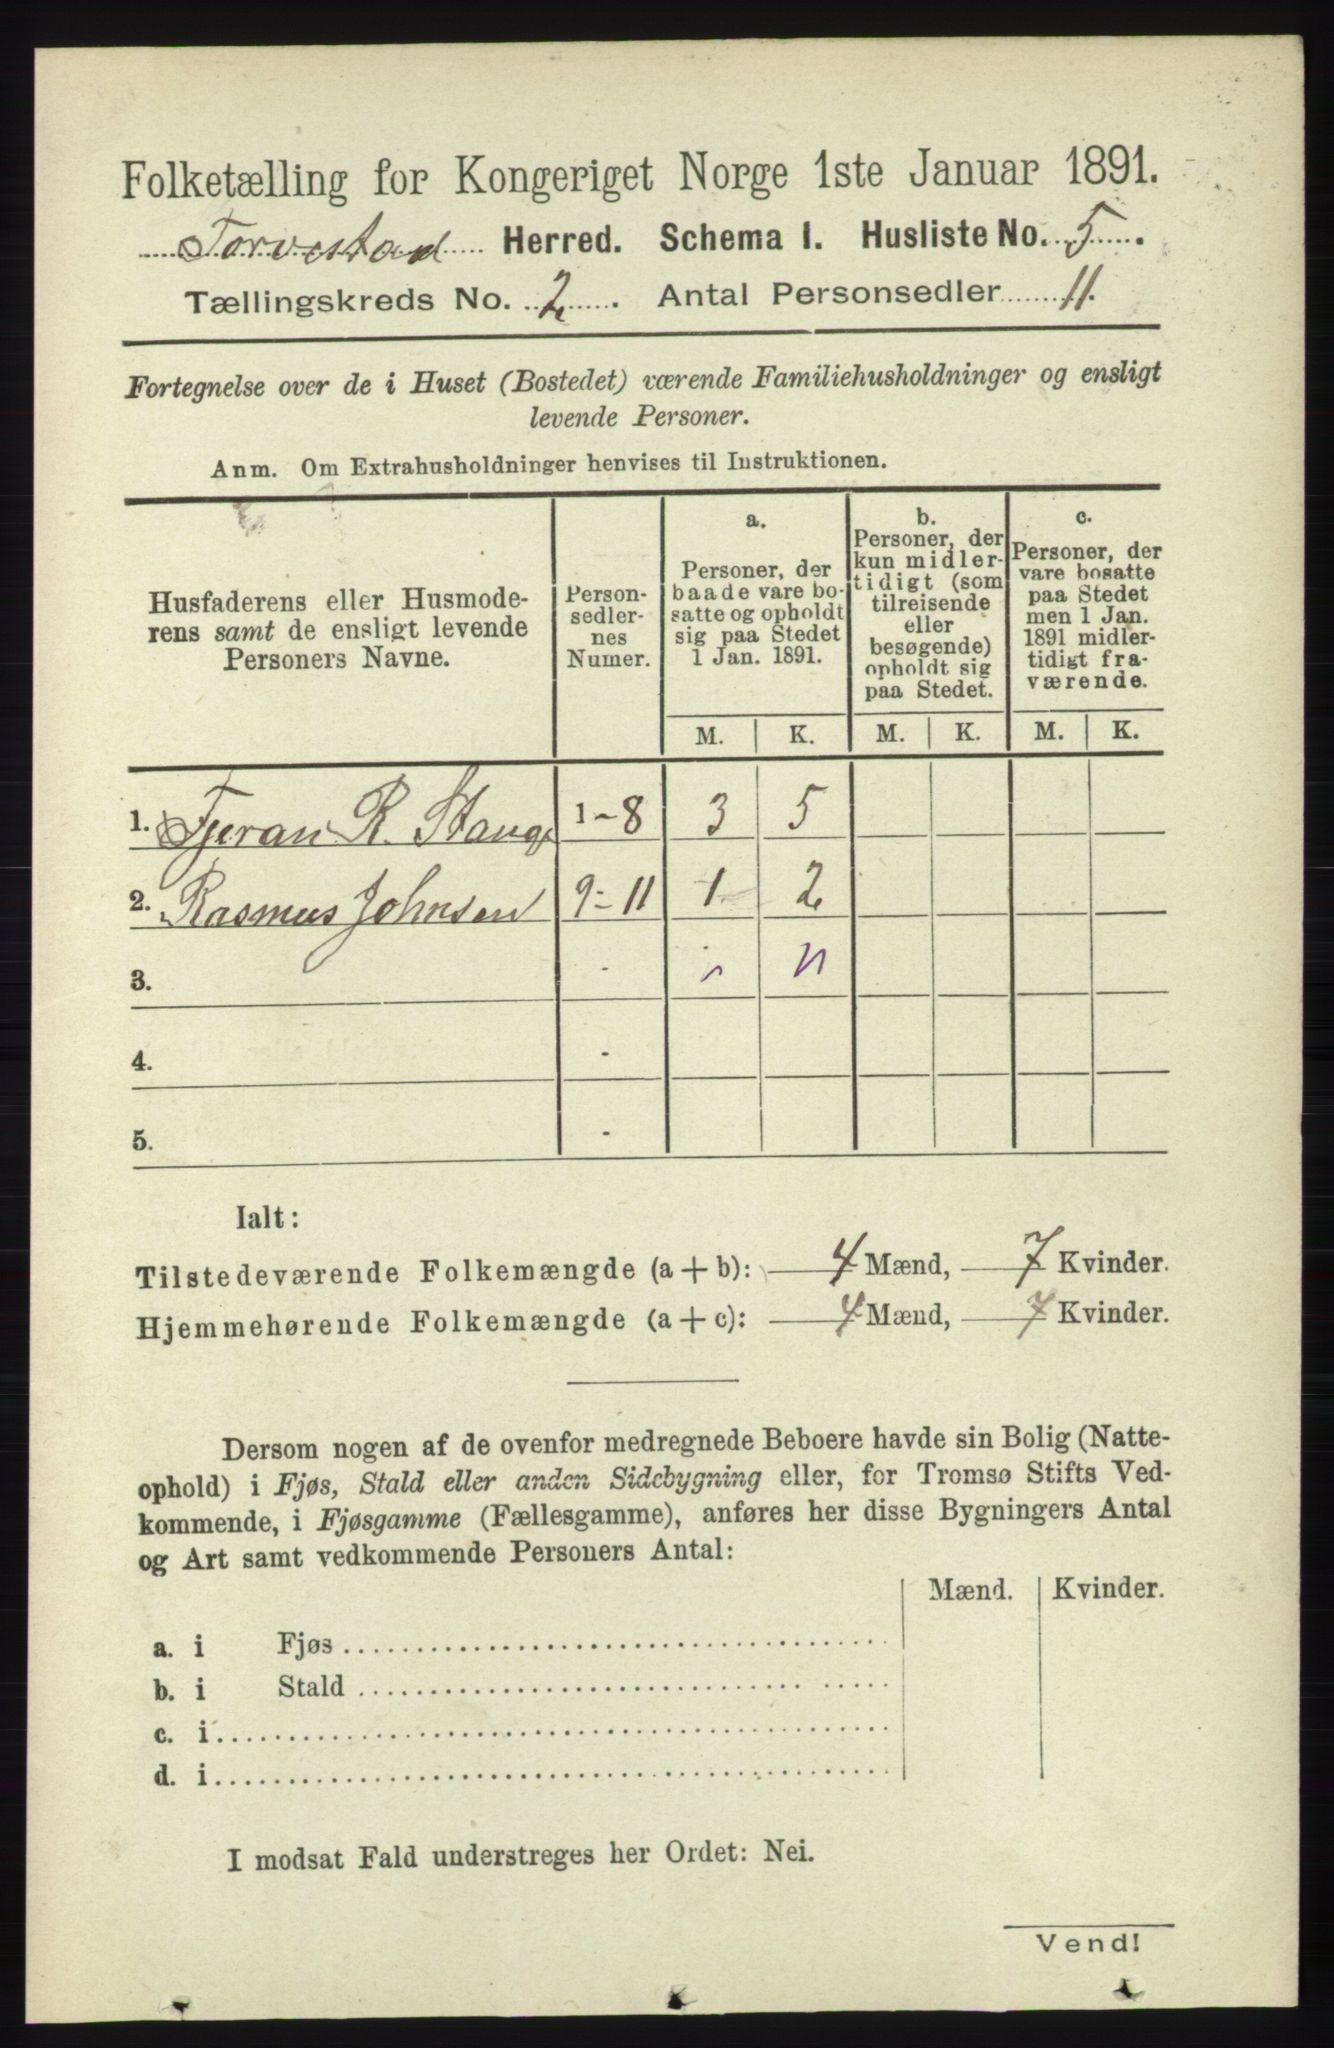 Folketælling for Kongeriget Norge 1ste Januar 1891.
Torvestad Herred. Schema I. Husliste No. 5.
Tællingskreds No. 2. Antal Personsedler 11.
Fortegnelse over de i Huset (Bostedet) værende Familiehusholdninger og ensligt
levende Personer.
Anm. Om Extrahusholdninger henvises til Instruktionen.
Husfaderens eller Husmode-
rens samt de ensligt levende
Personers Navne.
Person-
sedler-
nes
Numer.
a.
Personer, der
baade vare bo-
satte og opholdt
sig paa Stedet
1 Jan. 1891.
b.
Personer, der
kun midler-
tidigt (som
tilreisende
eller
besøgende)
opholdt sig
paa Stedet.
c.
Personer, der
vare bosatte
paa Stedet
men 1 Jan.
1891 midler-
tidigt fra-
værende.
M. K. M. K. M. K.
1. Tjeran R. Stange 1-8 3 5
2. Rasmus Johnsen 9-11 1 2
3. -
4. -
5. -
Ialt:
Tilstedeværende Folkemængde (a + b): 4 Mænd, 7 Kvinder.
Hjemmehørende Folkemængde (a + c): 4 Mænd, 7 Kvinder.
Dersom nogen af de ovenfor medregnede Beboere havde sin Bolig (Natte-
ophold) i Fjøs, Stald eller anden Sidebygning eller, for Tromsø Stifts Ved-
kommende, i Fjøsgamme (Fællesgamme), anføres her disse Bygningers Antal
og Art samt vedkommende Personers Antal:
Mænd. Kvinder.
a. i Fjøs
b. i Stald
c. i
d. i
I modsat Fald understreges her Ordet: Nei.
Vend!